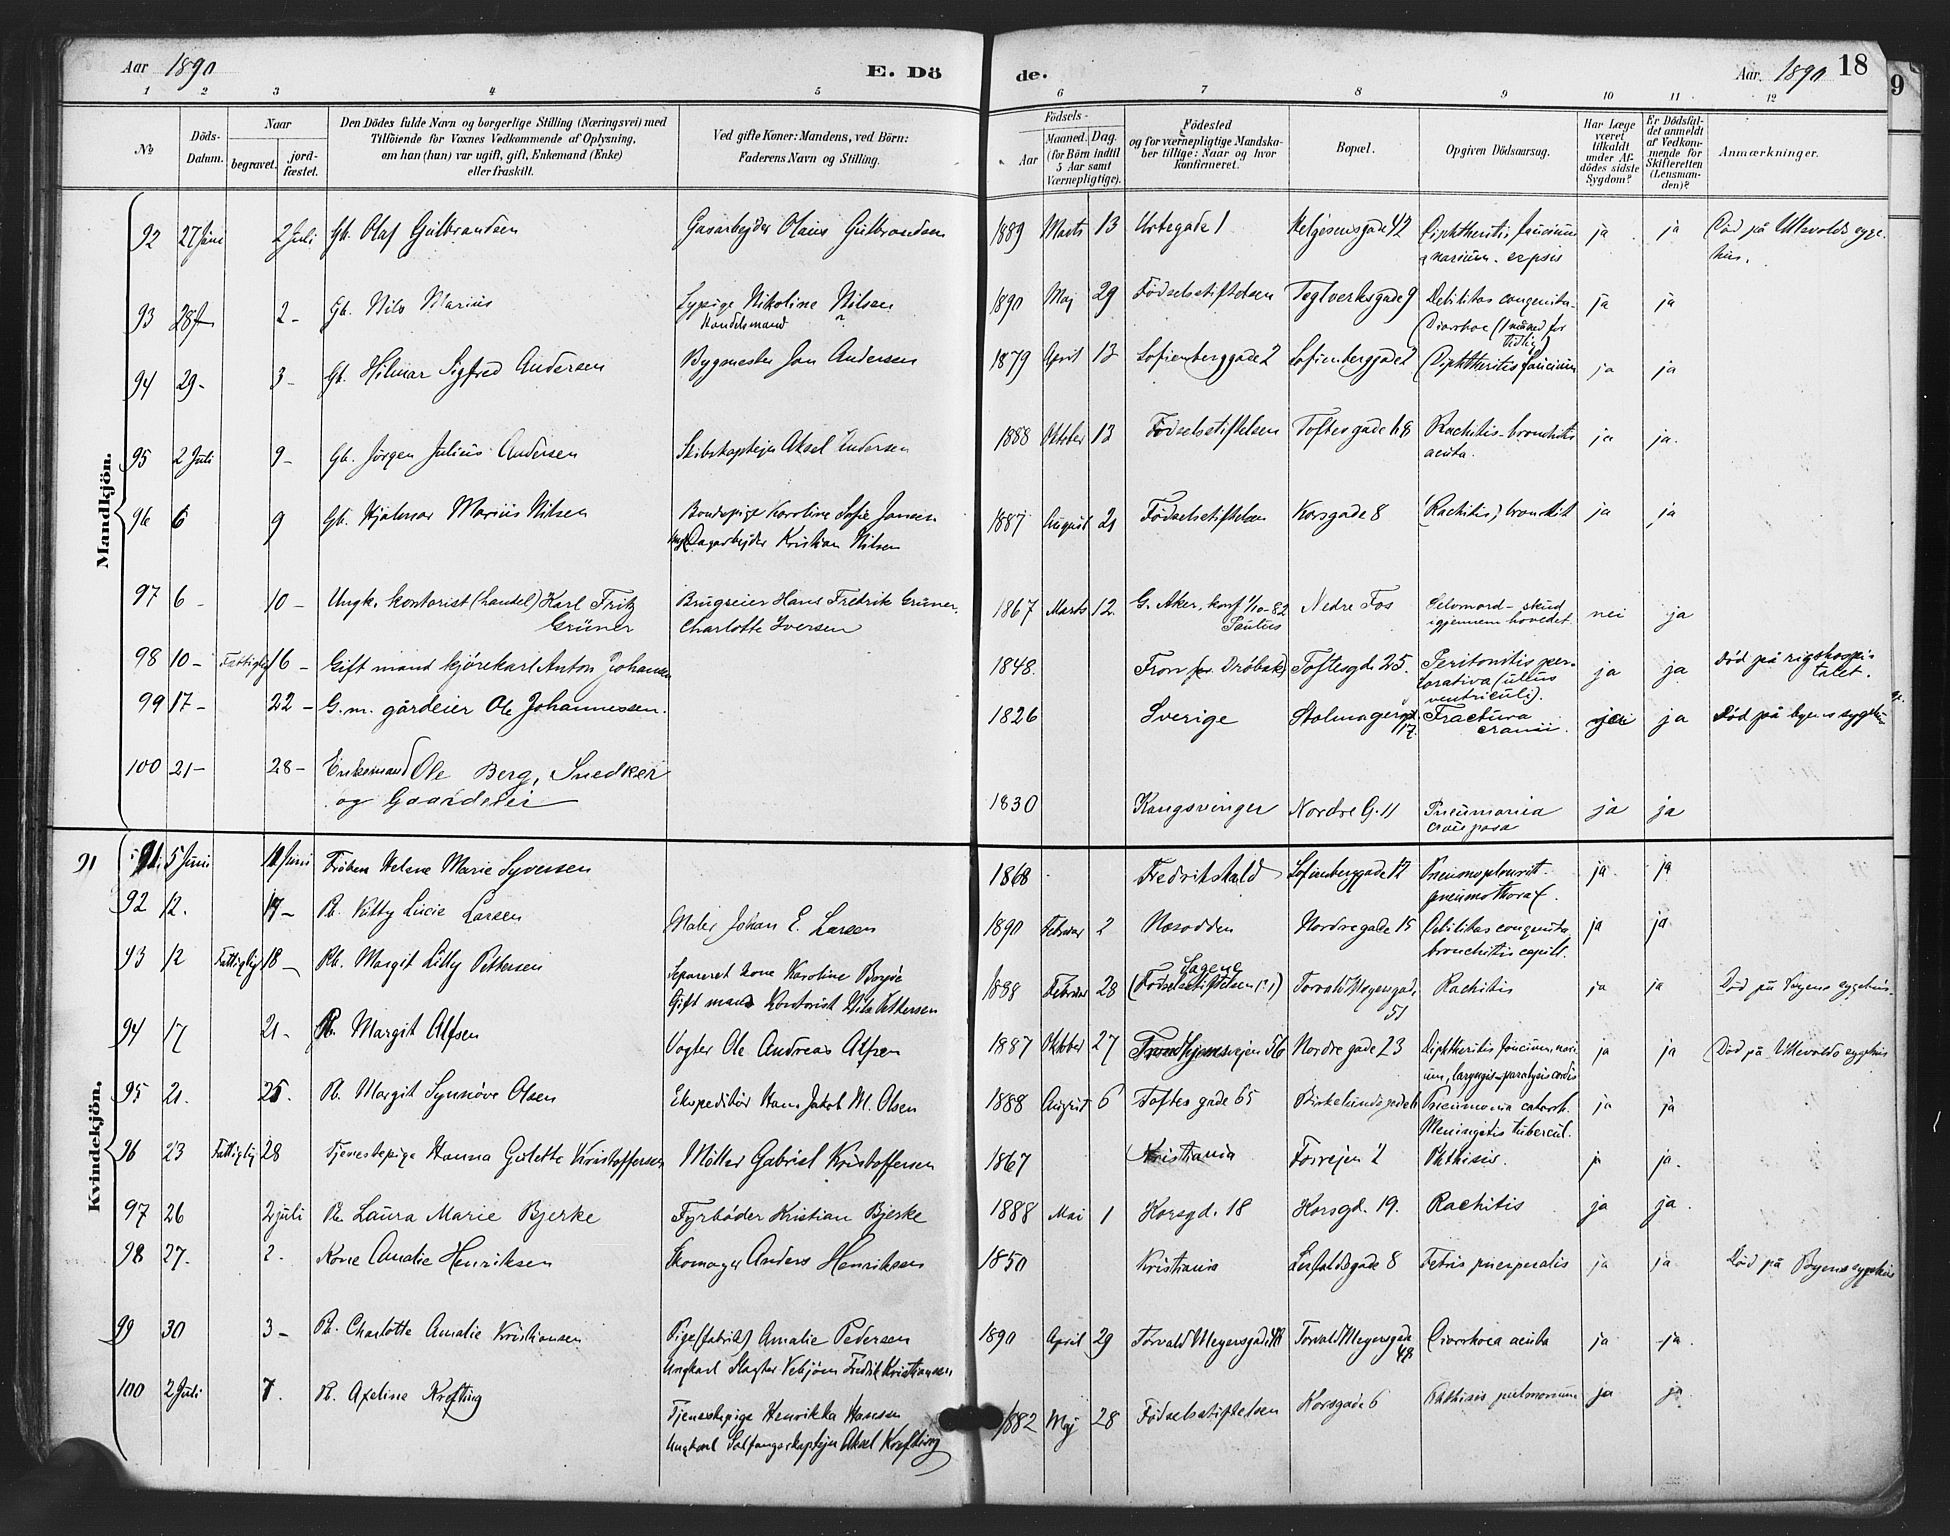 Aar 1890 E. Dö de. Aar 1890 18
9
1 2 3 4 5 6 7 8 9 10 11 12
No
Döds-Datum.
Naar
begravet. jord-fæstet.
Den Dödes fulde Navn og borgerlige Stilling (Næringsvei) med
Tilföiende for Voxnes Vedkommende af Oplysning,
om han (hun) var ugift, gift, Enkemand (Enke)
eller fraskilt.
Ved gifte Koner: Mandens, ved Börn:
Faderens Navn og Stilling.
Födsels-
Aar Maaned. Dag.
(for Börn indtil
5 Aar samt
Værnepligtige).
Födested
og for værnepligtige Mandska-
ber tillige: Naar og hvor
konfirmeret.
Bopæl.
Opgiven Dödsaarsag.
Har Læge
været
tilkaldt
under Af-
dödes sidste
Sygdom?
Er Dödsfal-
det anmeldt
af Vedkom-
mende for
Skifteretten
(Lensman-
den)?
Anmærkninger.
Mandkjön.
92 27 Juni 2 Juli Gb. Olaf Gulbrandsen Gasarbejder Olaus Gulbrandsen 1889 Marts 13 Urtegade 1 Helgesensgade 42 Diphtheritis faucium ja ja Död på Ullevolds syge-
& narium. sepsis hus.
93 28 2 - Gb. Nils Marius Sypige Nikoline Nilsen 1890 Maj 29 Födselsstiftelsen Teglverksgade 9 Debilitas congenita- ja ja
Handelsmand ? Diarrhoe (1 måned for
tidlig)
94 29 - 3 - Gb. Hilmar Sigfred Andersen Bygmester Jon Andersen 1879 April 13 Sofienberggade 2 Sofienberggade 2 Diphtheritis faucium ja ja
95 2 Juli 9 - Gb. Jörgen Julius Andersen Skibskaptejn Aksel Andersen 1888 Oktober 13 Födselsstiftelsen Toftesgade 68 Rachitis - bronchitis ja ja.
acuta.
96 6 9 Gb. Hjalmar Marius Nilsen Bondepige Karoline Sofie Jansen 1887 August 21 Födselsstiftelsen Korsgade 8 Rachitis, bronchit ja ja
Ungk. Dagarbejder Kristian Nilsen
97 6 - 10 - Ungk. kontorist (handel) Karl Fritz Brugseier Hans Fredrik Grüner, 1867 Marts 12. G. Aker, konf 1/10-82 Nedre Fos Selvmord - skud nei ja
Grüner Charlotte Iversen Paulus igjennem hovedet.
98 10 - Fattiglig 16 - Gift mand kjörekarl Anton Johansen 1848. Fron pr. Dröbak Toftesgd. 25. Peritonitis per- ja ja Död på rigshospi-
forativa (ulcus talet.
ventriculi).
99 17 - 22 - G. m. gårdeier Ole Johannessen. 1826 Sverige Stolmagergd. Fractura ja Död på byens sygehus
17 cranii.
100 21 - 28 - Enkemand Ole Berg, Snedker
og Gaardeier 1830 Kongsvinger Nordre G. 11 Pneumonia ja ja
crouposa
Kvindekjön.
91 91 5 Juni 11 Juni Fröken Helene Marie Syversen 1868 Fredrikshald Sofienberggade 12 Pneumopleurit. ja. ja
pneumothorax.
92 12. 17 - Pb. Kitty Lucie Larsen Maler Johan E. Larsen 1890 Februar 2 Næsodden Nordregade 15 Debilitas congenita, ja ja.
bronchitis capill.
93 12 Fattiglig 18 - Pb. Margit Lilly Pettersen Separeret kone Karoline Bogöe 1888 Februar 28 Sagene (Födselsstiftelsen) Torvald Meyersgade Rachitis ja ja Död på Byens sygehus.
Gift mand Kontorist Nils Pettersen 51
94 17 21 - Pb. Margit Alfsen Vogter Ole Andreas Alfsen 1887 Oktober 27 Trondhjemsvejen 56 Nordregade 23 Diphtheritis faucium, nari- ja ja Död på Ullevolds sygehus
um, laryngis - paralysis cordis
95 21. 25. Pb. Margit Synnöve Olsen Ekspeditör Hans Jakob M. Olsen 1888 August 6 Toftesgade 65 Birkelundsgade Pneumonia catarrh. ja ja
Meningitis tubercul.
96 23 Fattiglig 28 Tjenestepige Hanna Golette Kristoffersen Möller Gabriel Kristoffersen 1867 Kristiania Fosvejen 2 Phthisis. ja ja.
97 26 2 juli Pb. Laura Marie Bjerke Fyrböder Kristian Bjerke 1888 Mai 1 Korsgd. 18 Korsgd. 19. Rachitis ja ja.
98 27. 2. Kone Amalie Henriksen Skomager Anders Henriksen 1850 Kristiania Leirfaldsgade 8 Febris puerperalis ja ja. Död på Byens sygehus
99 30 3 - Pb. Charlotte Amalie Kristiansen Pige (fabrik) Amalie Pedersen 1890 April 29 Torvald Meyersgade 48 Torvald Meyersgade Diarrhoea acuta ja ja.
Ungkarl Slagter Vebjörn Fredrik Kristiansen 48
100 2 Juli 7. Pb. Axeline Krefting Tjenestepige Henrikka Hansen 1882 Maj 28 Födselsstiftelsen Korsgade 6 Phthisis pulmonum ja ja.
Ungkarl Sælfangerkaptejn Aksel Krefting